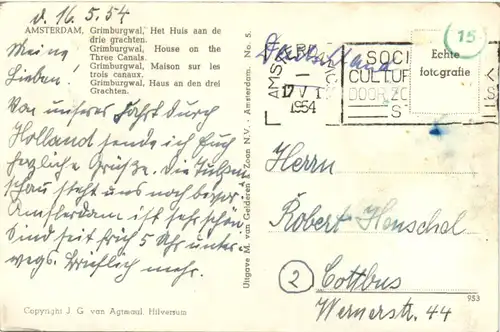 d. 16.5.54
AMSTERDAM, Grimburgwal, Het Huis aan de
drie grachten.
Grimburgwal, House on the
Three Canals.
Grimburgwal, Maison sur les
trois canaux.
Grimburgwal, Haus an den drei
Grachten.
Meine
Lieben!
Von unserer Fahrt durch
Holland sende ich Euch
herzliche Grüße. Die Tulpen-
schau steht uns noch bevor.
Amsterdam ist sehr schön.
Sind seit früh 5 Uhr unter-
wegs. Brieflich mehr.
Copyright J. G. van Agtmaal, Hilversum
Uitgave M. van Gelderen & Zoon N.V. - Amsterdam. No. 5.
Deutschland
AMS
17 V
1954
SOCI
CULTUR
DOOR ZO
S
Echte
fotografie
15
Herrn
Robert Henschel
2 Cottbus
Wernerstr. 44
953